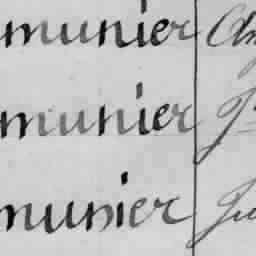 munier
munier
munier